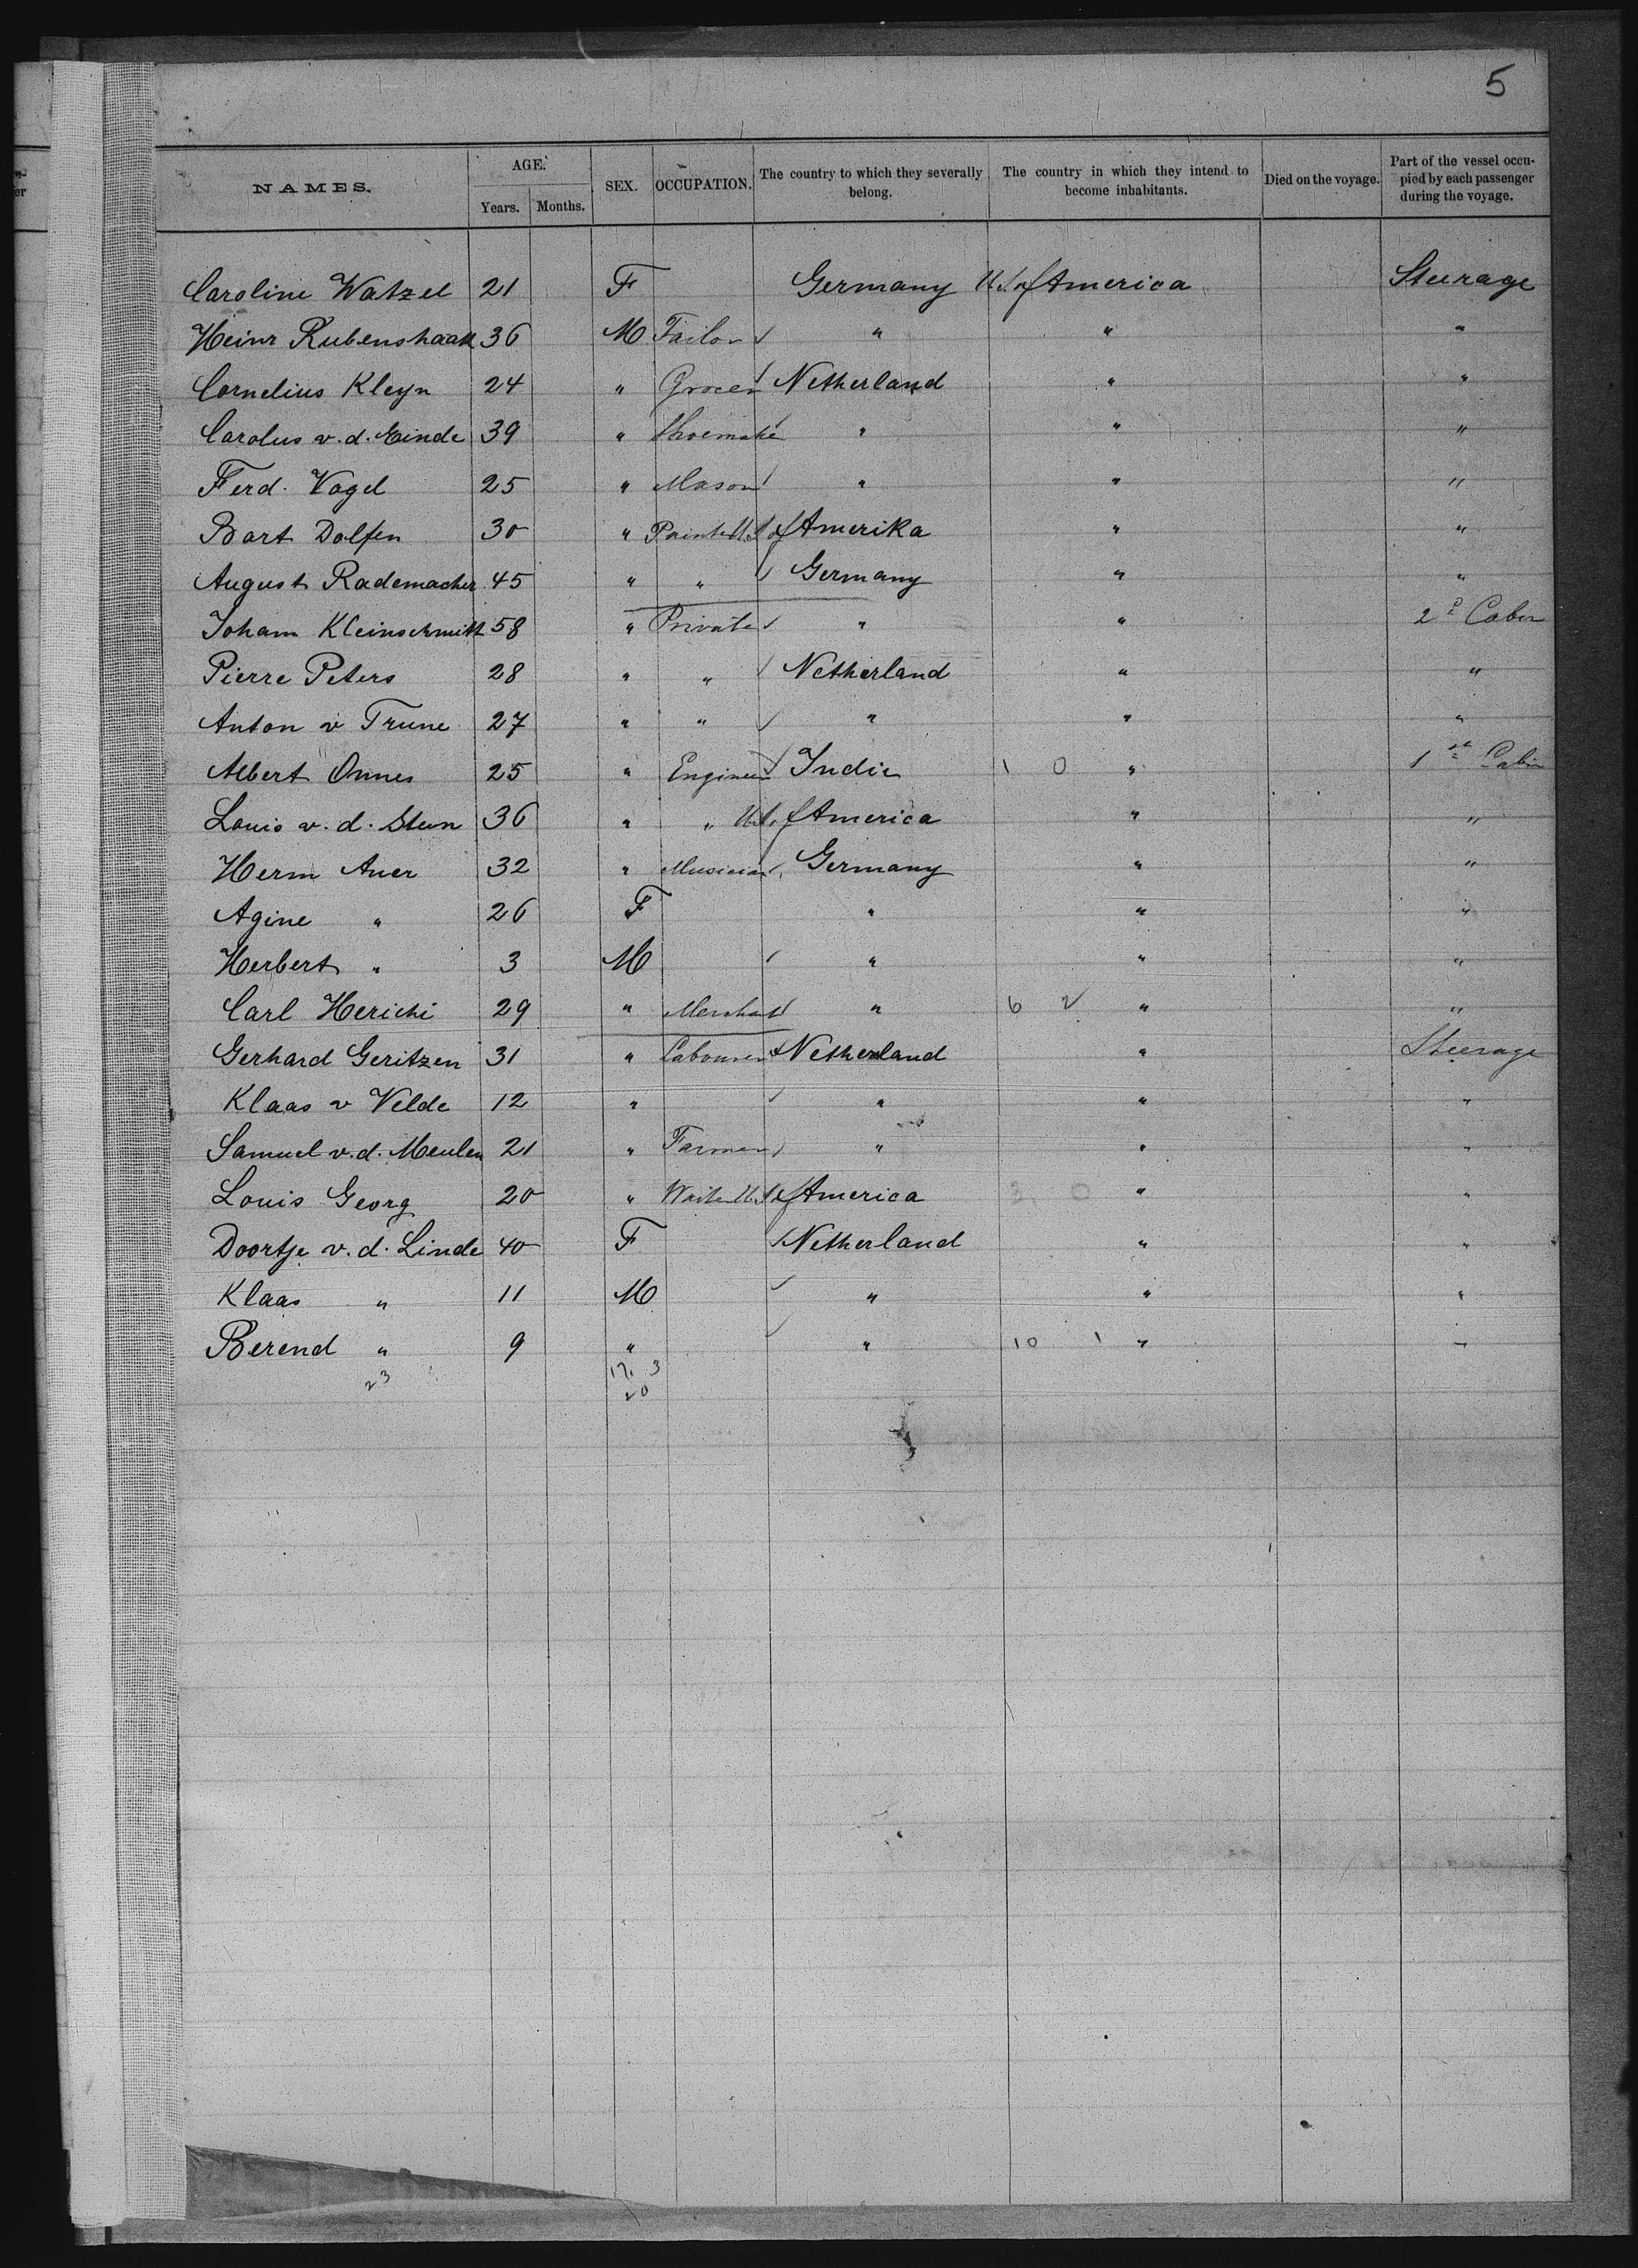 5
NAMES. AGE. Years. Months. SEX. OCCUPATION. The country to which they severally belong. The country in which they intend to become inhabitants. Died on the voyage. Part of the vessel occupied by each passenger during the voyage.
Caroline Watzel 21 F Germany U.S. of America Steerage
Heinr Rubenshaak 36 M Tailor " " "
Cornelius Kleyn 24 " Grocer Netherland " "
Carolus v. d. Einde 39 " Shoemake " " "
Ferd. Vogel 25 " Mason " " "
Bart Dolfen 30 " Painte U.S of Amerika " "
August Rademacher 45 " " Germany " "
Joham Kleinschmitt 58 " Private " " 2d Cabin
Pierre Peters 28 " " Netherland " "
Anton v Trune 27 " " " " "
Albert Onnes 25 " Engineer Indie 1 0 " 1st Cabin
Louis v. d. Steen 36 " " U.S. of America " "
Herm Auer 32 " Musician Germany " "
Agine " 26 F " " "
Herbert " 3 M " " "
Carl Herichi 29 " Merchat " 6 2 " "
Gerhard Geritzen 31 " Labourer Netherland " Steerage
Klaas v Velde 12 " " " "
Samuel v. d. Meulen 21 " Farmer " " "
Louis Georg 20 " Waite U.S of America 3, 0 " "
Doortje v. d. Linde 40 F Netherland " "
Klaas " 11 M " " "
Berend " 9 " " 10 1 " "
23 17. 3
20